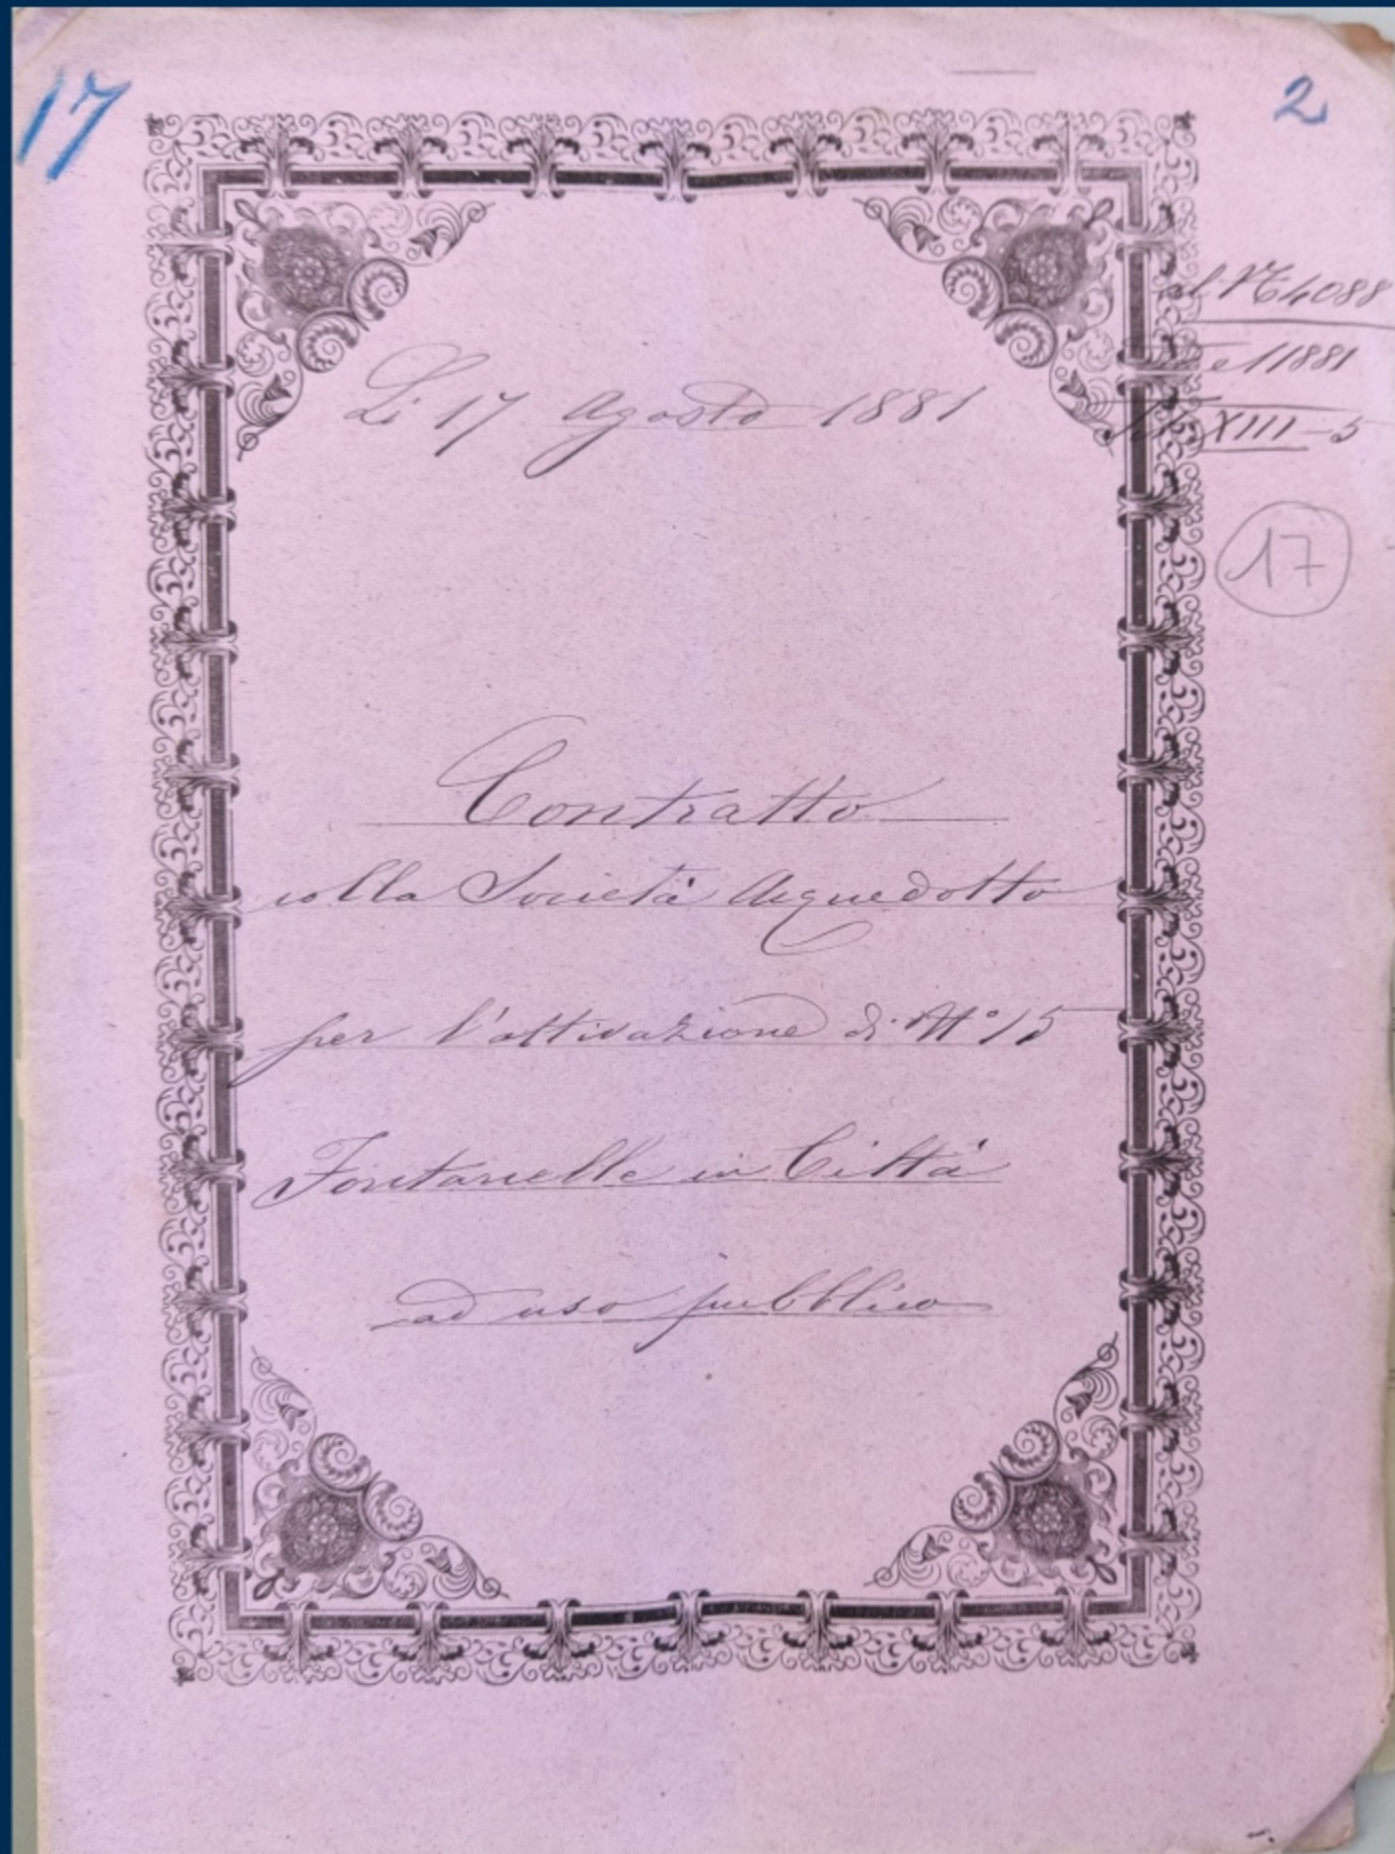 17
2
al N° 4088
e 1881
XIII-5
17
Li 17 Agosto 1881
Contratto
colla Società Acquedotto
per l'attivazione di N° 15
Fontanelle in Città
ad uso pubblico